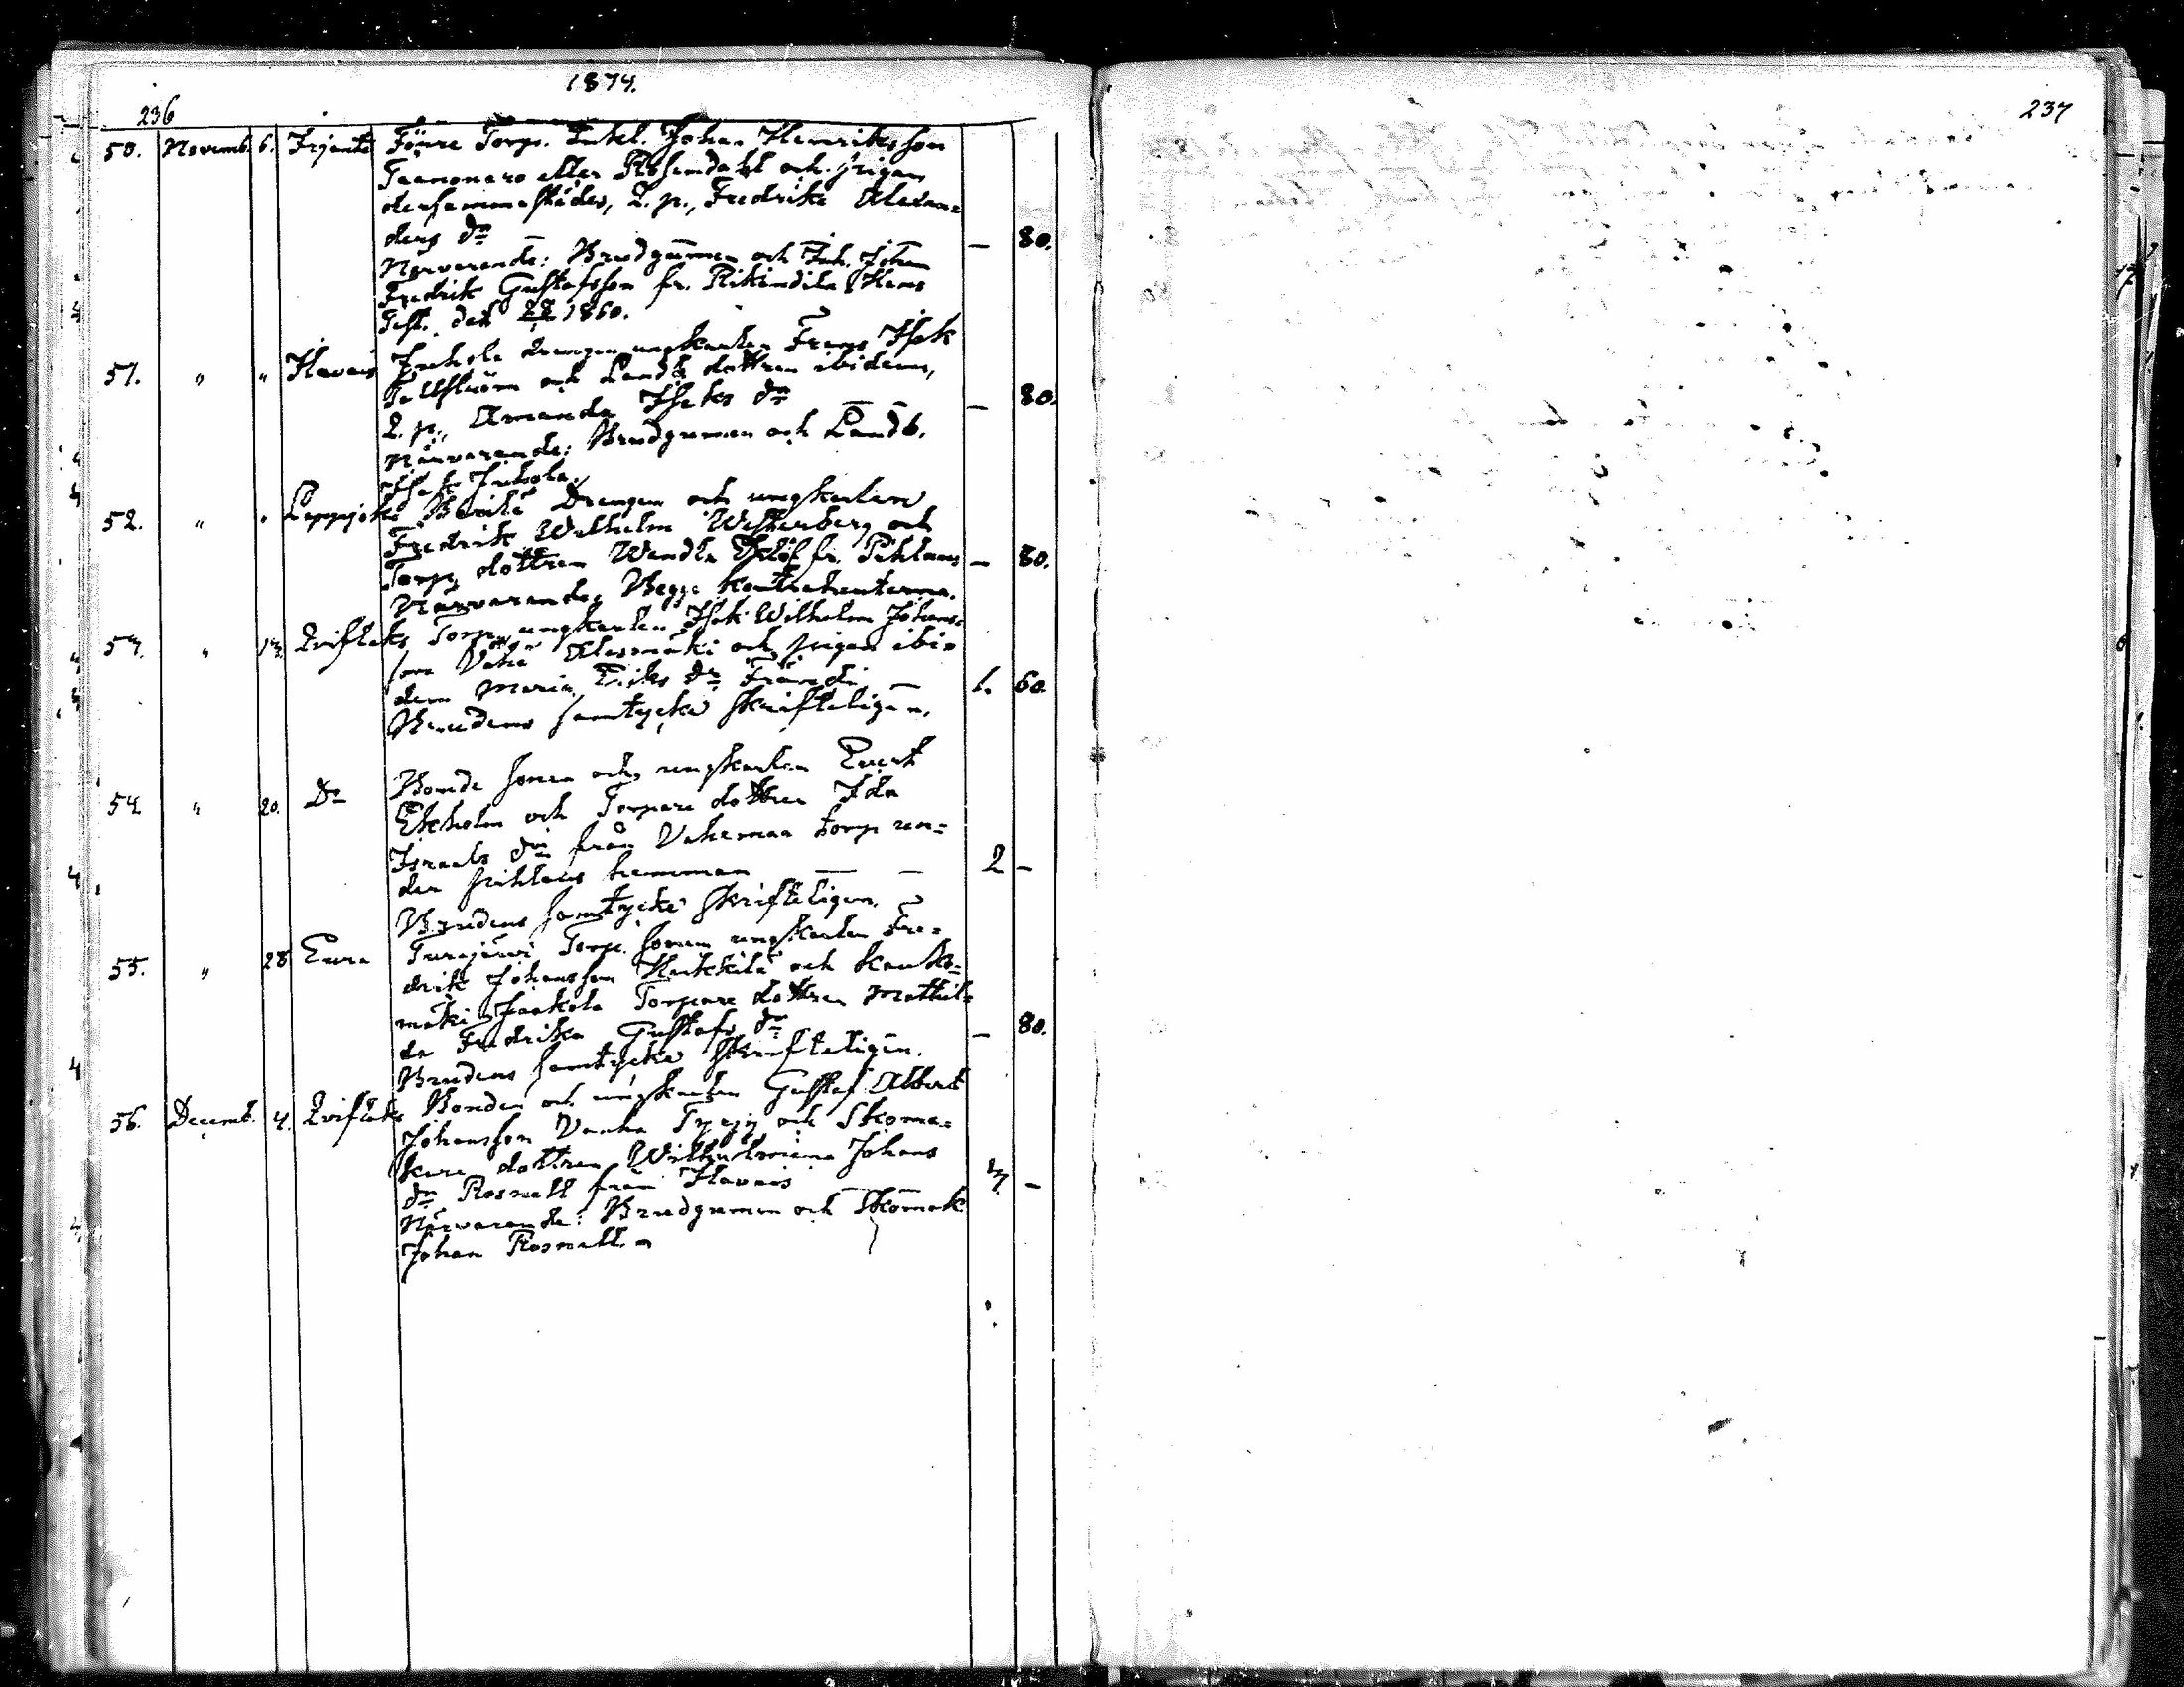 1874.
236
237
50. Novemb. 6. Irjante Föure Torp. Enkl. Johan Henriksson
eller Rosendahl och pigan
dersammastädes, 2. p., Fredrika Alexan=
ders dr — 80.
Närvarande: Brudgummen och Inh. Johan
Fredrik Gustafsson fr. Rikindila Hans
Test. den 1860.
51. " " Havais Juhola drengen ungkarlen Frans Isak
Tallström och Landb dottren ibidem,
2. p., Amanda Isaks dr — 80.
Närvarande: Brudgumen och Landb.
Isak Juhola.
52. " " Lappijoki Drengen och ungkarlen
Fredrik Wilhelm Westerberg och
Torp. dottren Wendla fr. Pihlaus — 80.
Närvarande: Begge Kontrahenterna.
57. " 13. Torp. ungkarlen Isak Wilhelm Johans=
son Vähä Alesmäki och pigan ibi=
dem Maria Eriks dr 1. 60.
Brudens samtycke skrifteligen.
54. " 20. Do Bonde sonen och ungkarlen Evert
Ekholm och Torpare dottren Ida
Israels dr från Vahemaa torp un=
der pihlaus hemman 2 —
Brudens samtycke skrifteligen.
55. " 28 Eura Turajärvi Torp. sonen ungkarlen Fre=
drik Johansson och
mäki Jaakola Torpare dottren Mathil=
da Fredrika Gustafs dr — 80.
Brudens samtycke skrifteligen.
56. Decemb. 4. Bonden och ungkarlen Gustaf Albert
Johansson Vanha och Skoma=
kare dottren Wilhelmina Johans
dr Rosnell från Havais 3 —
Närvarande: Brudgumen och Skomak
Johan Rosnell.